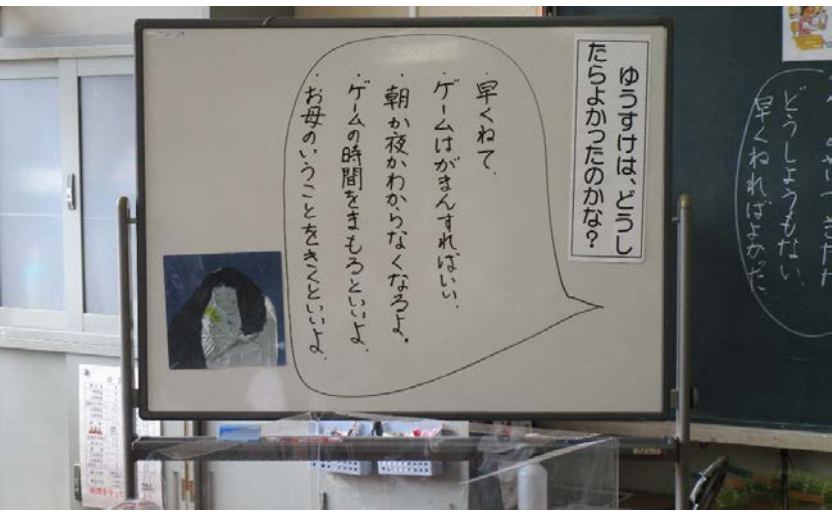 ゆうすけは、どうし
たらよかったのかな?
・早くねて、
・ゲームはがまんすればいい、
・朝か夜かわからなくなるよ。
・ゲームの時間をまもるといいよ、
・お母のいうことをきくといいよ、
どうしようもない、
早くねればよかった、